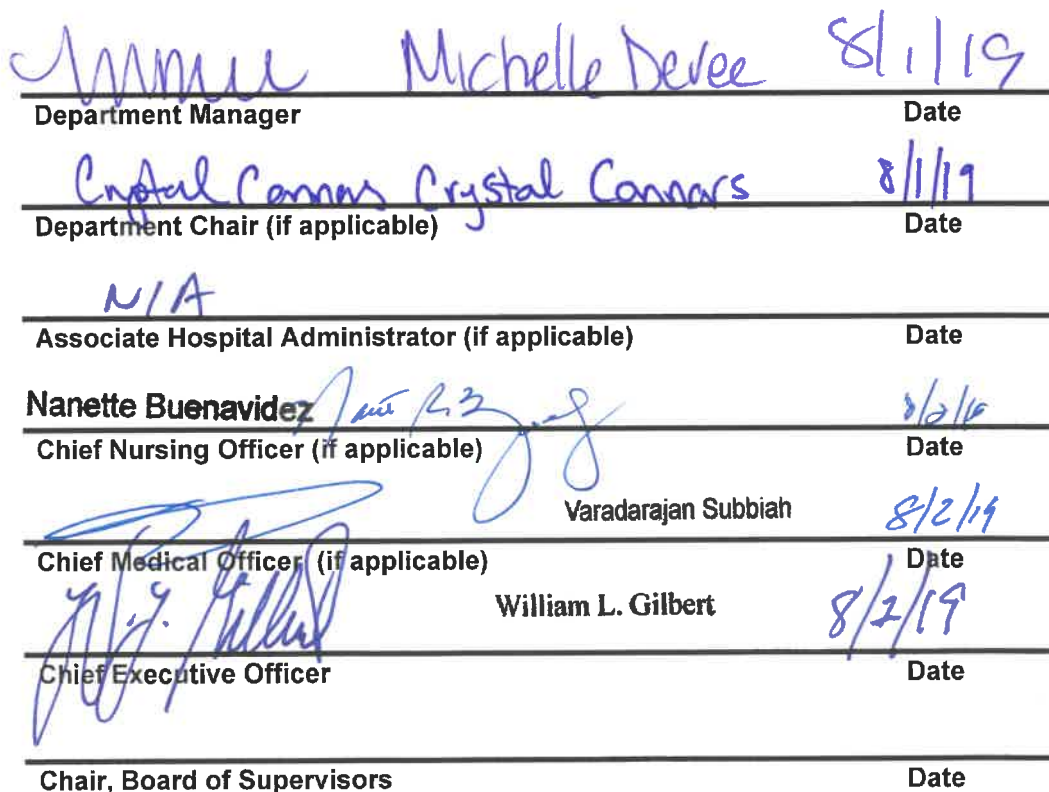 Michelle Deree 8/1/19
Department Manager Date
Crystal Connors Crystal Connors 8/1/19
Department Chair (if applicable) Date
N/A
Associate Hospital Administrator (if applicable) Date
Nanette Buenavidez
Chief Nursing Officer (if applicable) Date
Varadarajan Subbiah 8/2/19
Chief Medical Officer (if applicable) Date
William L. Gilbert 8/2/19
Chief Executive Officer Date
Chair, Board of Supervisors Date